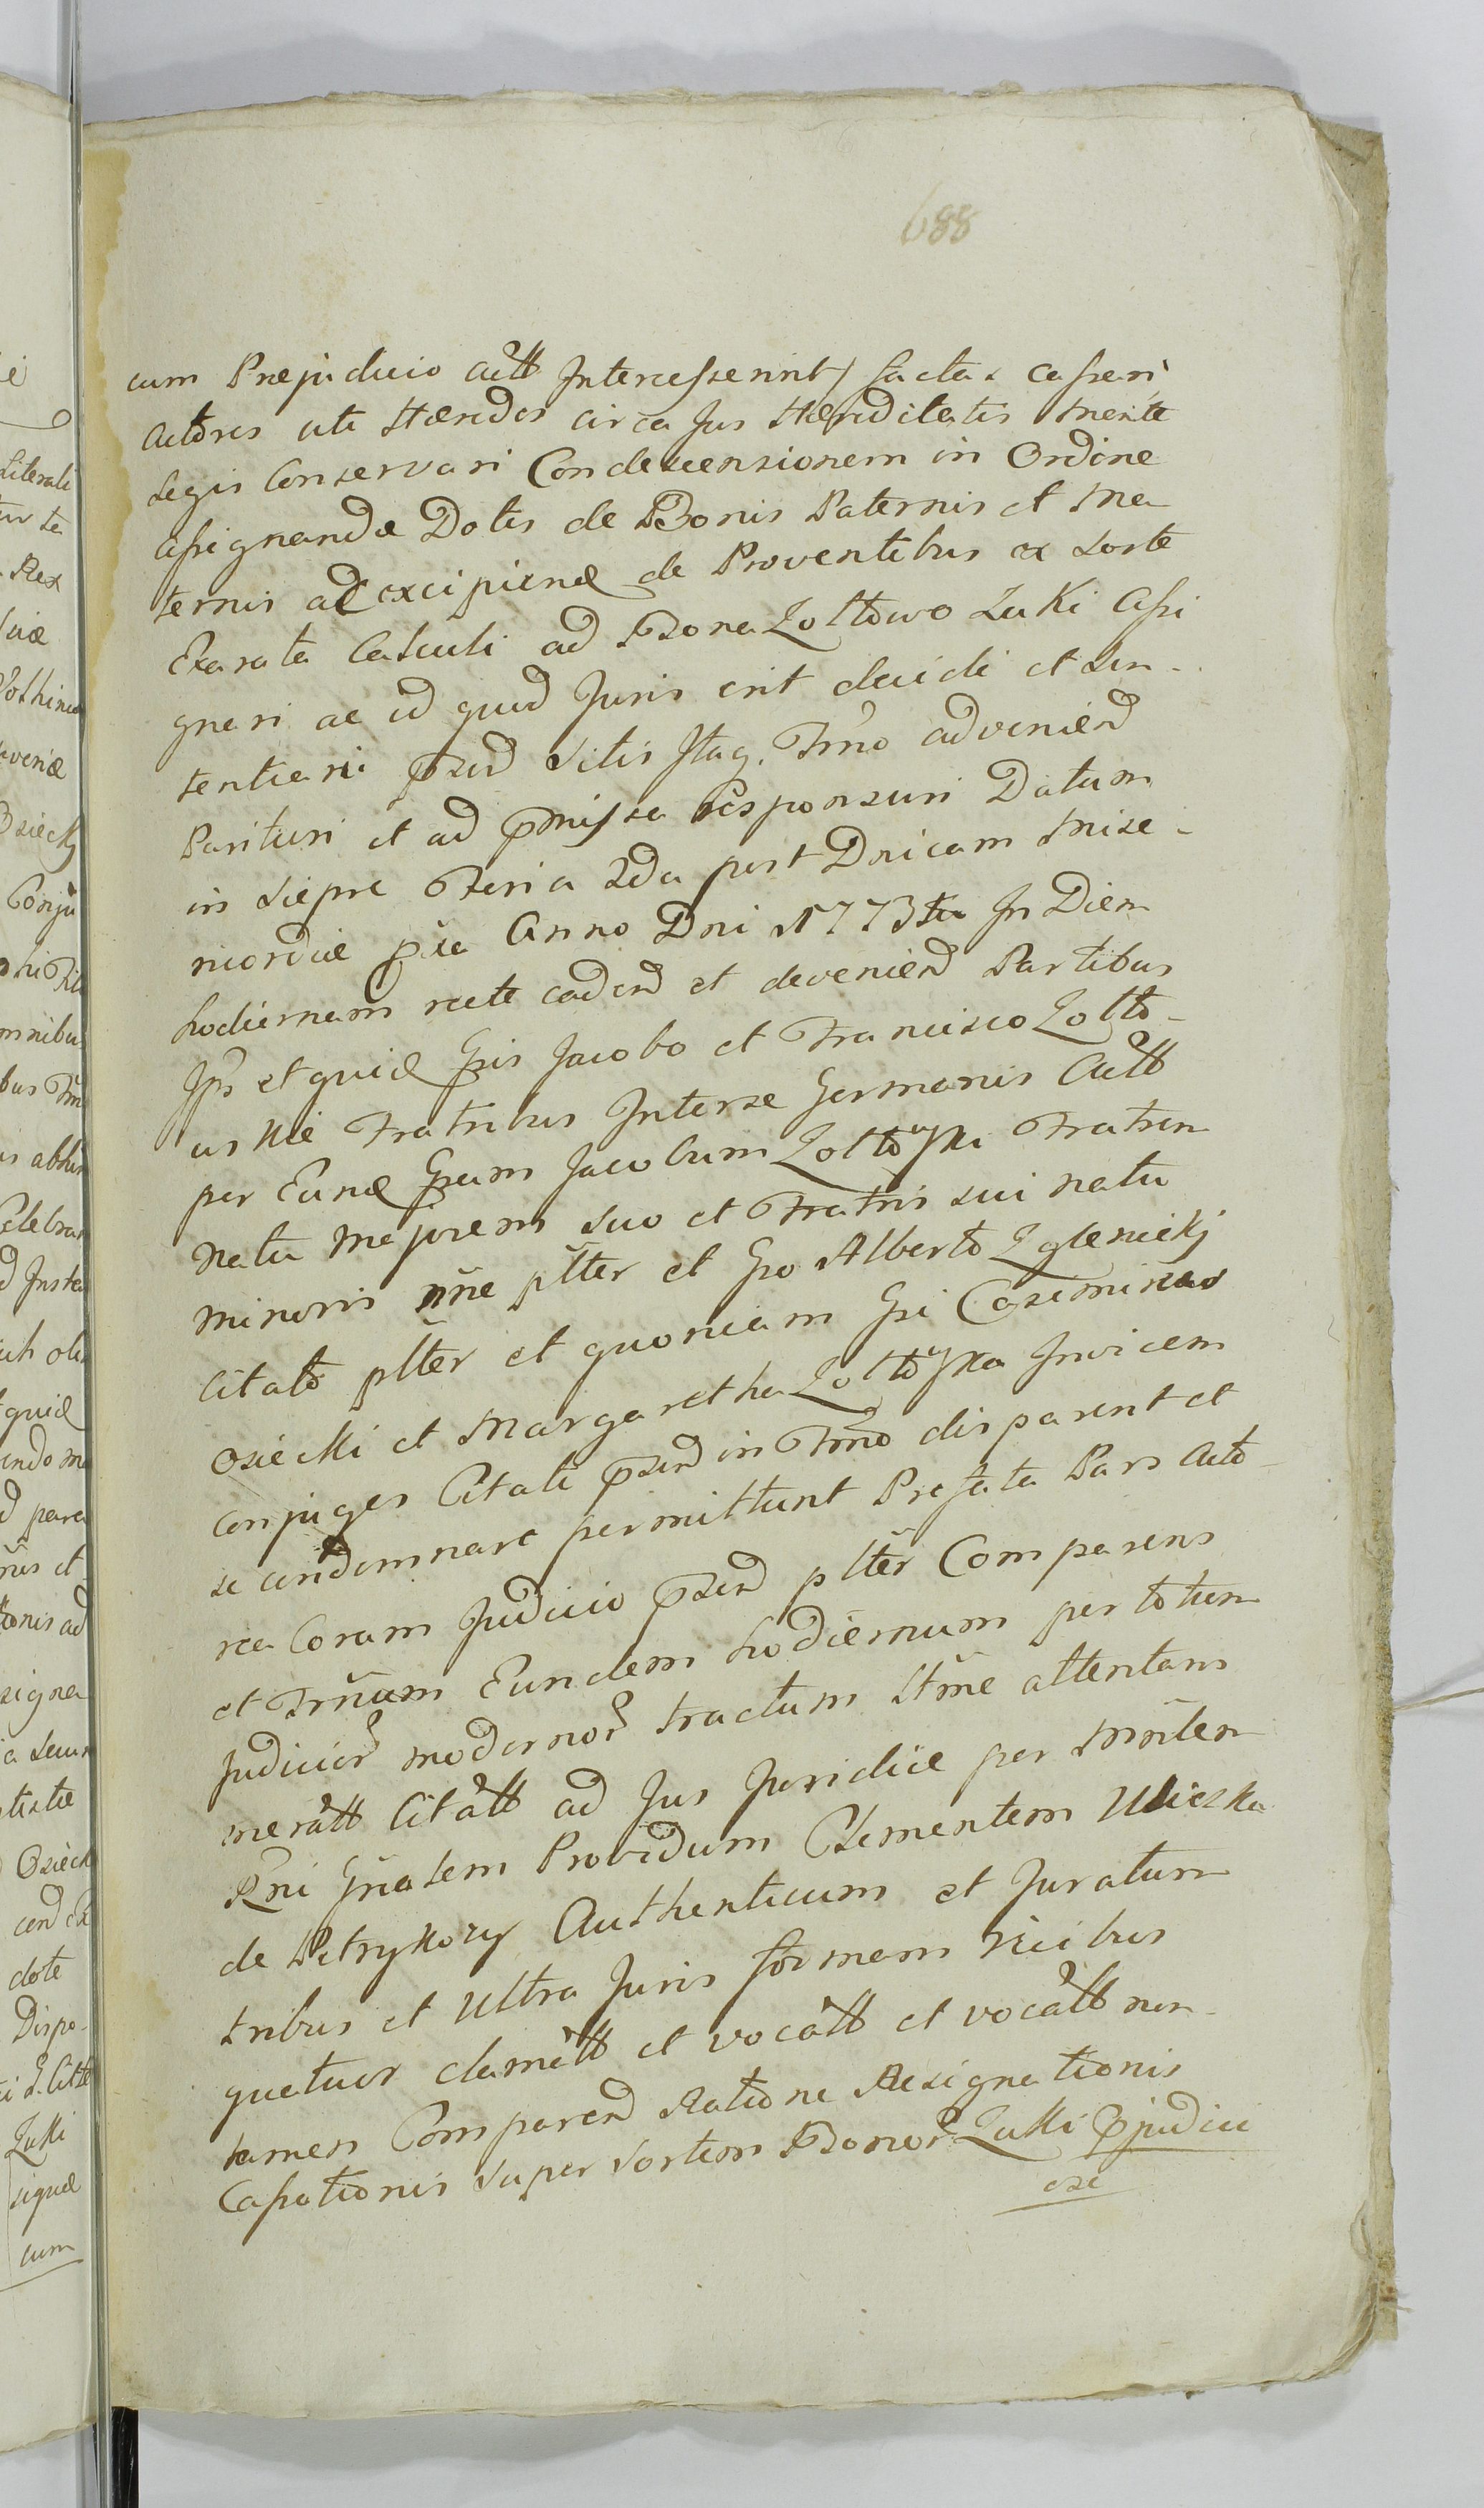 688
cum Præjudicio actt Intercesserint) factas cassari
Actores uti Hæredes circa Jus Hæreditatis mente
Legis Conservari Condescensionem in Ordine
Assignandæ Dotis de Bonis Paternis et Ma
ternis ad excipiend de Proventibus ex sorte
Exarata Calculi ad Bona Zołtowo Łuki Assi
gnari ac id quid Juris erit decidi et Sen-
tentiari pñd Sitis Itaq. Trno adveniend
Parituri et ad pmissa responsuri Datum
in Siepre Feria 2da post Dnicam Mise-
ricordiæ pxa Anno Dni 1773tio In Diem
hodiernam recte cadend et deveniend Partibus
Ips et quid Gsis Jacobo et Francisco Zołto-
wskie Fratribus Interse Germanis Actt
per Eund Gsum Jacobum Zołtowski Fratrem
Natu Majorem suo et Fratris sui natu
minoris nñe plter et Gso Alberto Zglenicki
Citato plter et quoniam Gsi Casimirus
Osiecki et Margaretha Zołtowska Invicem
Conjuges Citati pñd in Trno disparent et
se condemnare permittunt Præfata Pars Acto-
rea Coram Judicio pñd plter Comparens
et Trñum Eundem hodiernum per totum
Judicior modernor tractum Itme attentans
meratt Citatt ad Jus Juridice per Mñtem
Rñi Gñalem Providum Clementem Uliczka
de Petrykozy Authenticum et Juratum
tribus et Ultra Juris formam Vicibus
quatuor clamatt et vocatt et vocatt non-
tamen Comparend Ratione Resignationis
Cassationis super sortem Bonor Łuki Pjudici
ose